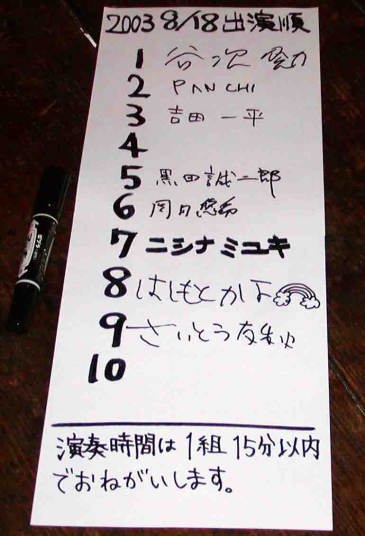 2003 8/18 出演順
1 谷次
2 PANCHI
3 吉田 一平
4
5 黒田誠二郎
6
7 ニシナミユキ
8 はしもとかよ
9 さいとう友
10
演奏時間は1組15分以内
でおねがいします。